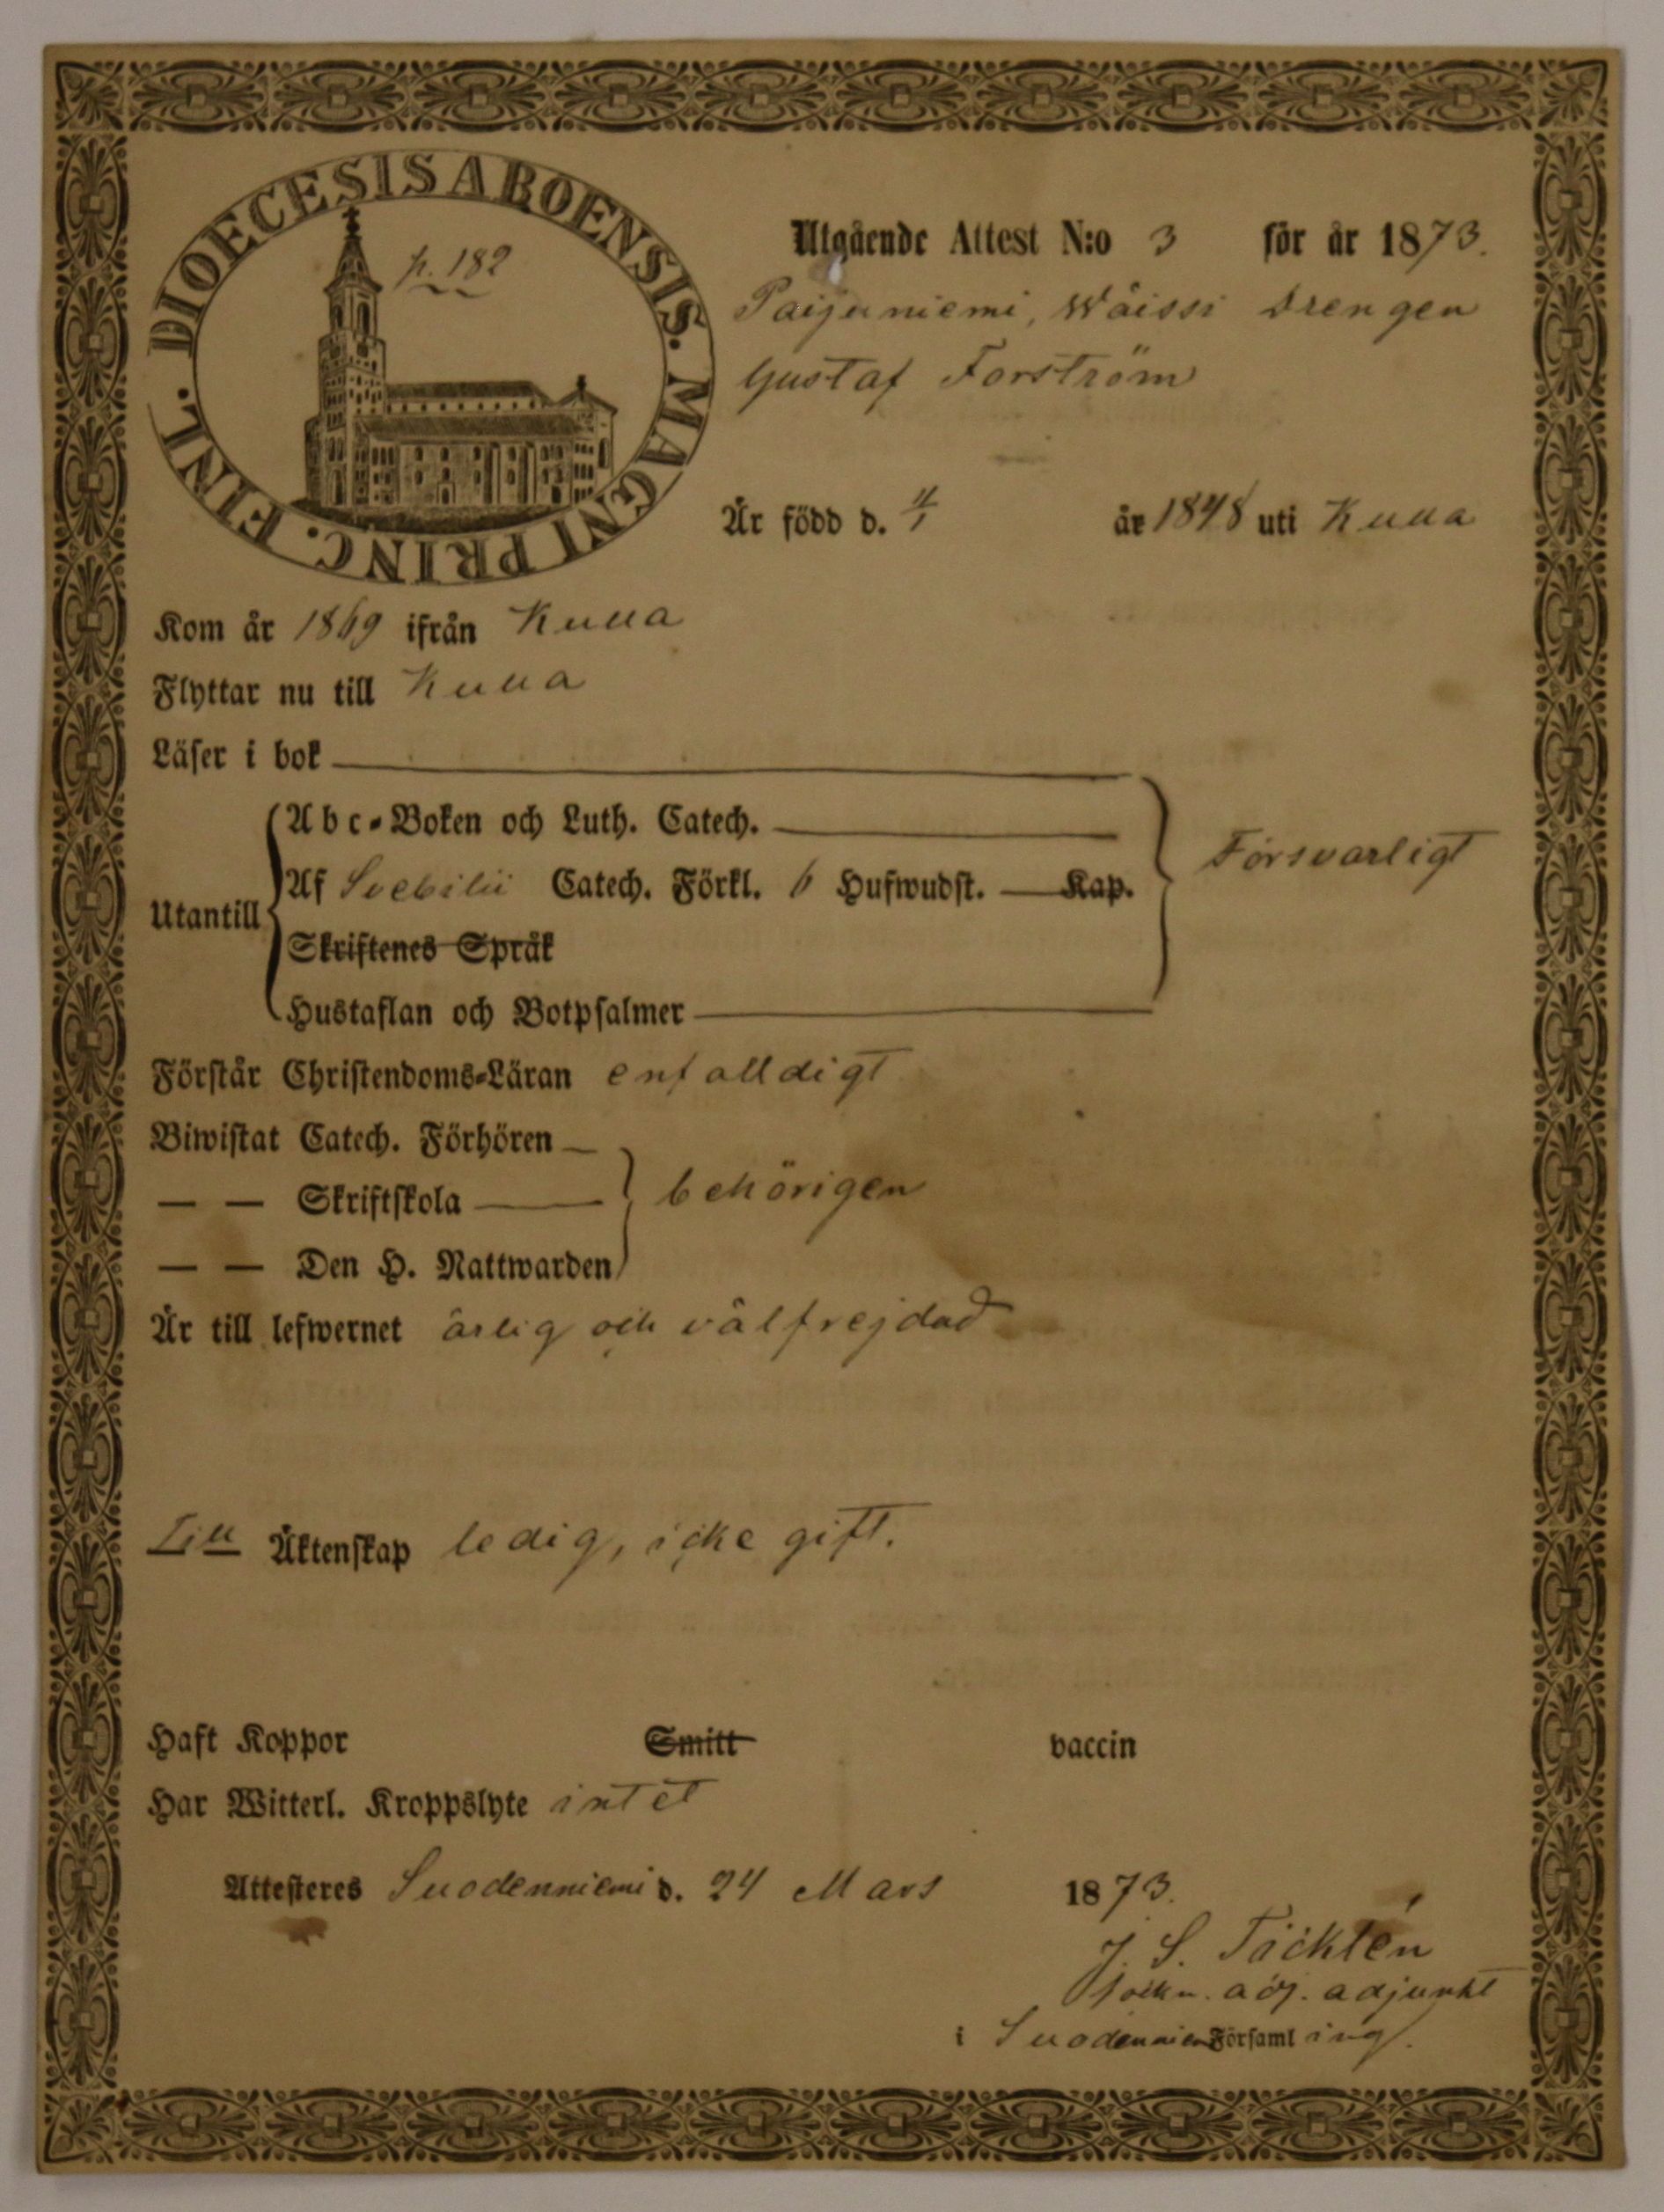 DIOECESIS ABOENSIS. MAGNI PRINC. FINL.
p. 182
Utgående Attest N:o 3 för år 1873.
Paijuniemi, Wäissi Drengen
Gustaf Forström
Är född d. 4/1 år 1848 uti Kulla
Kom år 1869 ifrån Kulla
Flyttar nu till Kulla
Läser i bok
Utantill
Abc-Boken och Luth. Catech.
Af Svebilii Catech. Förkl. 6 Hufwudst. Kap.
Skriftenes Språk
Hustaflan och Botpsalmer
Försvarligt
Förstår Christendoms-Läran enfalldigt
Biwistat Catech. Förhören
— — Skriftskola
— — Den H. Nattwarden
behörigen
Är till lefwernet ärlig och välfrejdad
Till Äktenskap ledig, icke gift.
Haft Koppor Smitt vaccin
Har Witterl. Kroppslyte intet
Attesteres Suodenniemi d. 24 Mars 1873.
J. S. Täcklén
adj. adjunkt
i Suodenniemi Församling.